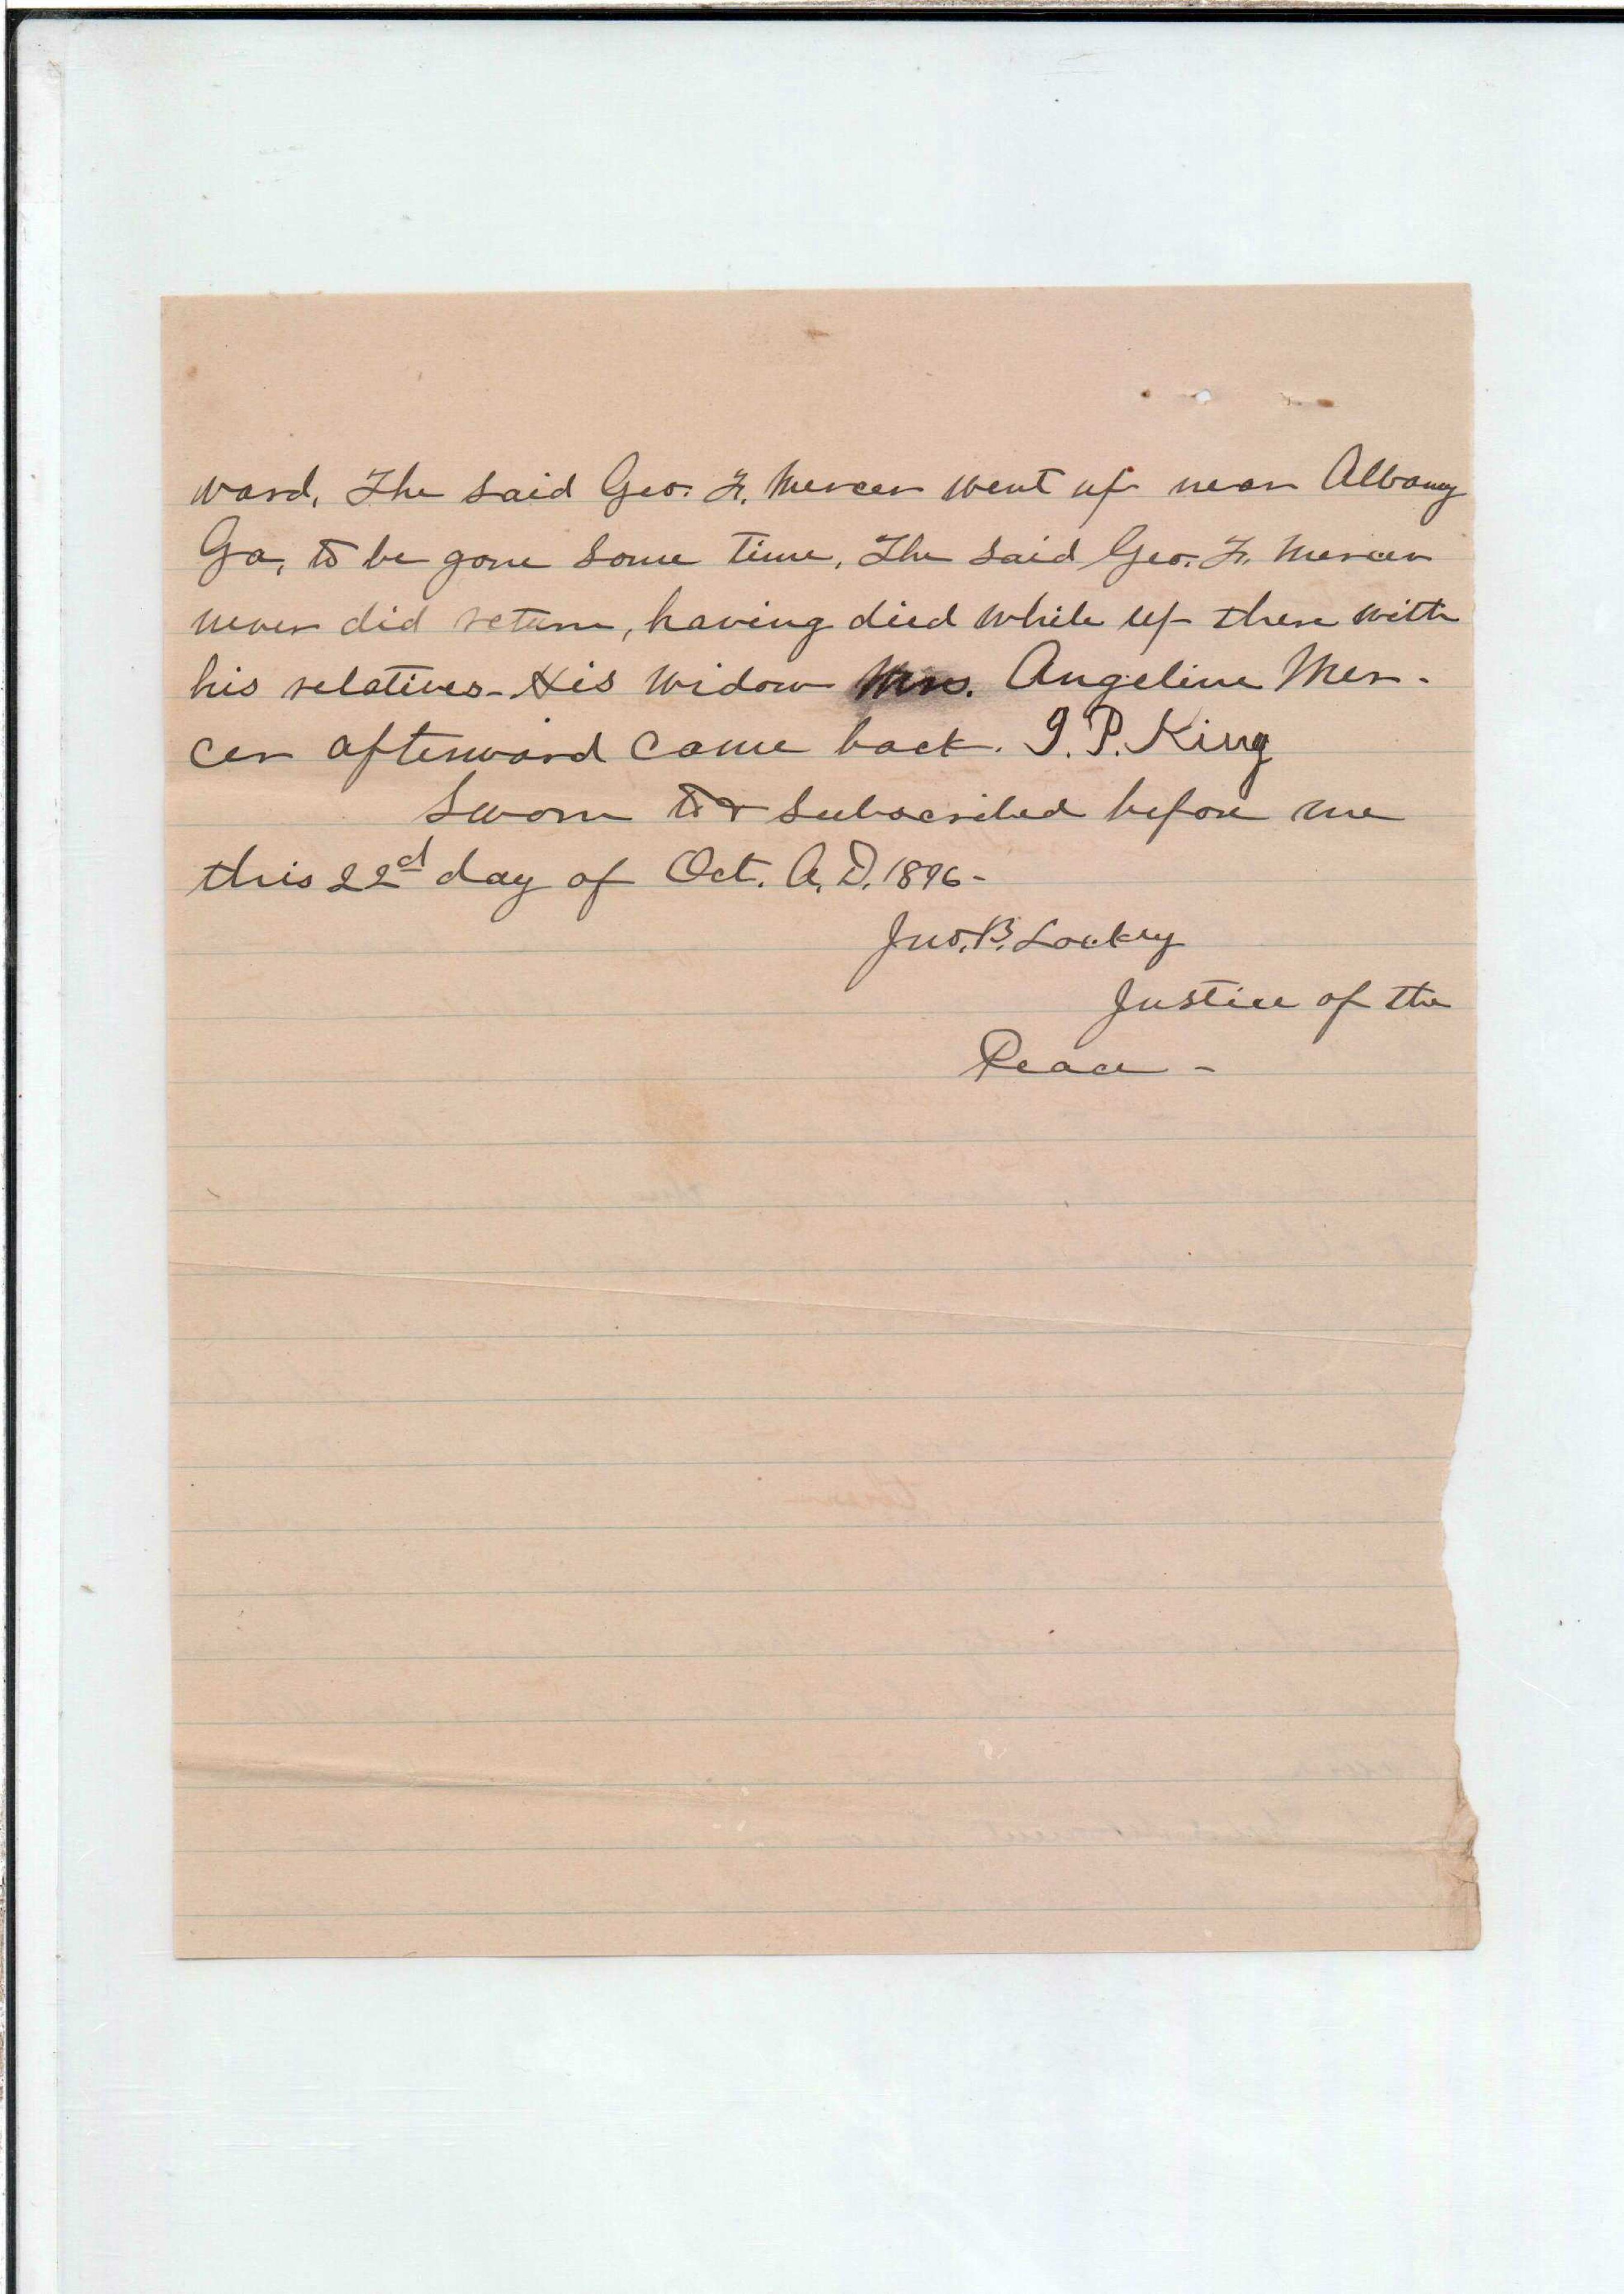 ward, The said Geo. F. Mercer went up near Albany
Ga, to be gone some time, The said Geo. F. Mercer
never did return, having died while up there with
his relatives - His widow Mrs. Angeline Mer-
cer afterward came back. I. P. King
Sworn to & subscribed before me
this 22d day of Oct. A. D. 1896 -
Jno. B. Lockey
Justice of the
Peace -